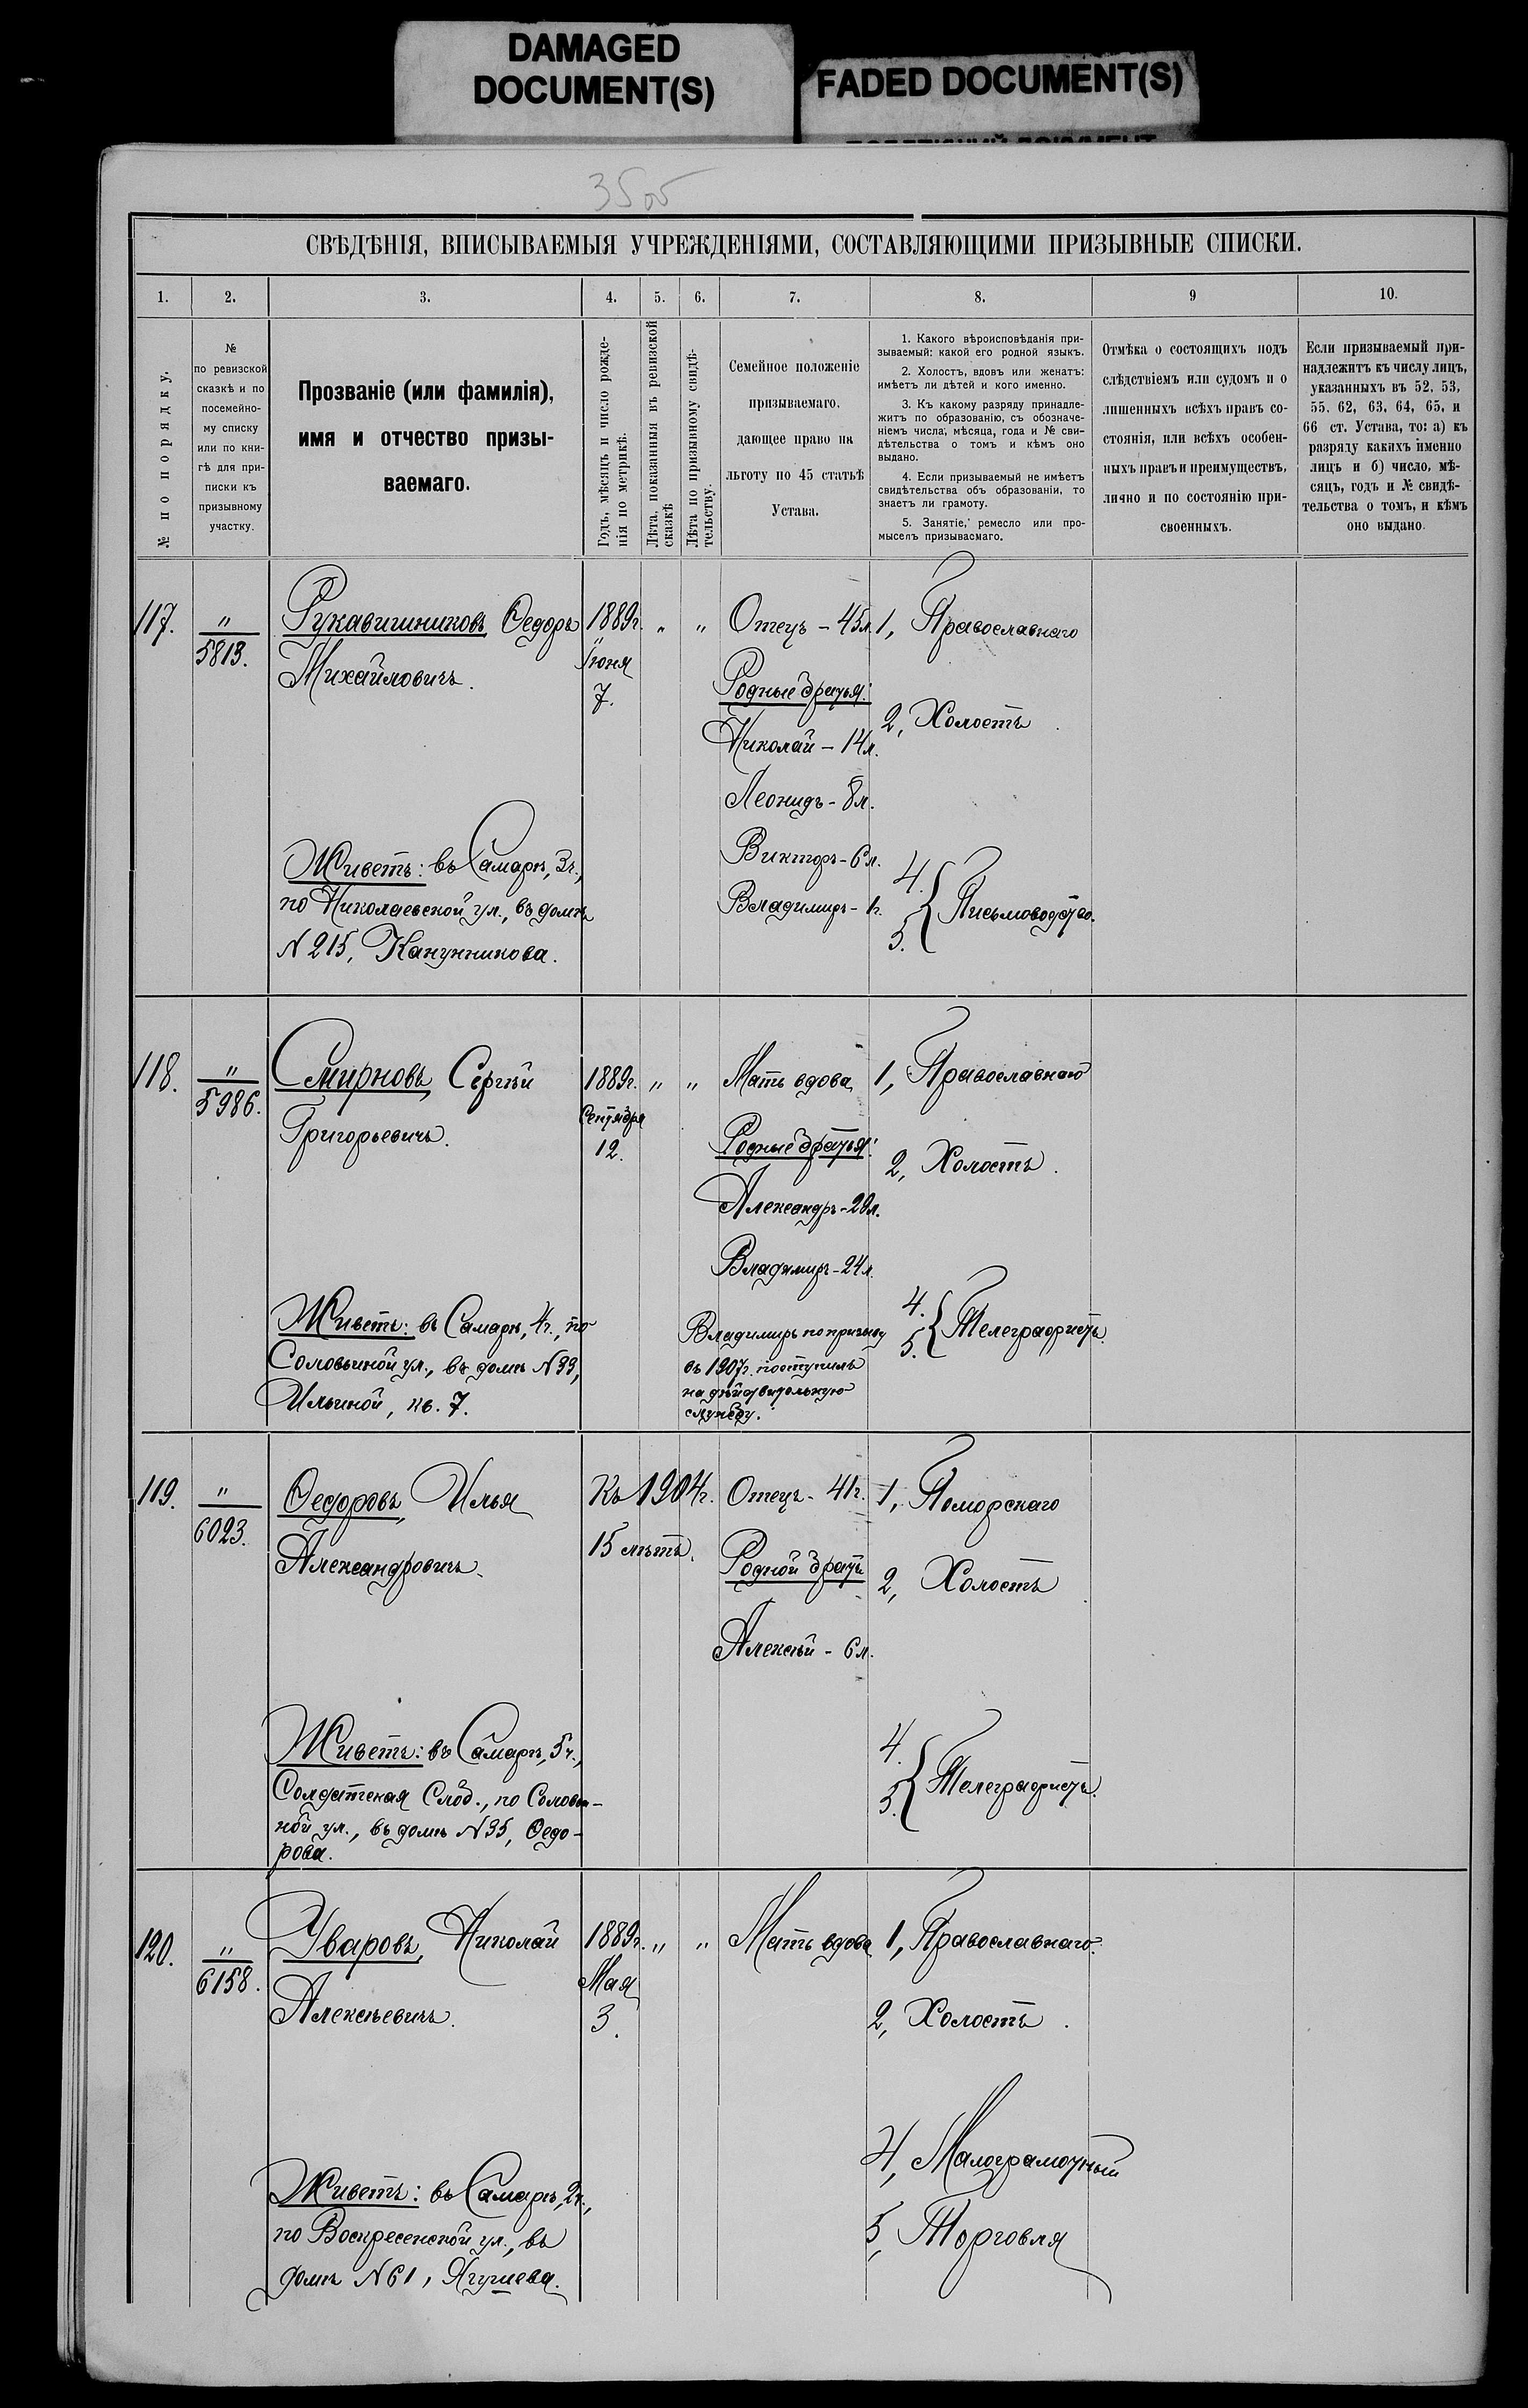 DAMAGED
DOCUMENT(S)
FADED DOCUMENT(S)
СВѢДѢНІЯ, ВПИСЫВАЕМЫЯ УЧРЕЖДЕНІЯМИ, СОСТАВЛЯЮЩИМИ ПРИЗЫВНЫЕ СПИСКИ.
1.
2.
3.
4.
5.
6.
7.
8.
9
10.
№ по порядку.
№
по ревизской
сказкѣ и по
посемейно-
му списку
или по кни-
гѣ для при-
писки къ
призывному
участку.
Прозваніе (или фамилія),
имя и отчество призы-
ваемаго.
Годъ, мѣсяцъ и число рожде-
нія по метрикѣ.
Лѣта, показанныя въ ревизской
сказкѣ
Лѣта по призывному свидѣ-
тельству.
Семейное положеніе
призываемаго,
дающее право на
льготу по 45 статьѣ
Устава.
1. Какого вѣроисповѣданія при-
зываемый: какой его родной языкъ.
2. Холостъ, вдовъ или женатъ:
имѣетъ ли дѣтей и кого именно.
3. Къ какому разряду принадле-
житъ по образованію, съ обозначе-
ніемъ числа, мѣсяца, года и № сви-
дѣтельства о томъ и кѣмъ оно
выдано.
4. Если призываемый не имѣетъ
свидѣтельства объ образованіи, то
знаетъ ли грамоту.
5. Занятіе, ремесло или про-
мыселъ призываемаго.
Отмѣка о состоящихъ подъ
слѣдствіемъ или судомъ и о
лишенныхъ всѣхъ правъ со-
стоянія, или всѣхъ особен-
ныхъ правъ и преимуществъ,
лично и по состоянію при-
своенныхъ.
Если призываемый при-
надлежитъ къ числу лицъ,
указанныхъ въ 52, 53,
55, 62, 63, 64, 65, и
66 ст. Устава, то: а) къ
разряду какихъ именно
лицъ и б) число, мѣ-
сяцъ, годъ и № свидѣ-
тельства о томъ, и кѣмъ
оно выдано.
117.
"
5813.
Рукавишниковъ, Ѳедоръ
Михайловичъ.
Живетъ: въ Самарѣ, 3ч.,
по Николаевской ул., въ домѣ
№ 215, Канунникова.
1889г.
Іюня
7.
"
"
Отецъ - 45л.
Родные братья:
Николай - 14л.
Леонидъ - 8л.
Викторъ - 6л.
Владимиръ - 1г.
1, Православнаго
2, Холостъ
4.
5.
{ Письмоводство.
118.
"
5986.
Смирновъ, Сергѣй
Григорьевичъ.
Живетъ: въ Самарѣ, 4ч., по
Соловьиной ул., въ домѣ № 39,
Ильиной, кв. 7.
1889г.
Сентября
12.
"
"
Мать вдова
Родные братья:
Александръ - 29л.
Владимиръ - 24л.
Владимиръ по призыву
въ 1907г. поступилъ
на дѣйствительную
службу.
1, Православнаго
2, Холостъ.
4.
5.
{ Телеграфистъ
119.
"
6023.
Ѳедоровъ, Илья
Александровичъ.
Живетъ: въ Самарѣ, 5ч.,
Солдатская Слоб., по Соловьи-
ной ул., въ домѣ № 35, Ѳедо-
рова.
Къ 1904г.
15 лѣтъ.
Отецъ - 41г.
Родной братъ
Алексѣй - 6л.
1, Поморскаго
2, Холостъ
4.
5.
{ Телеграфистъ.
120.
"
6158.
Уваровъ, Николай
Алексѣевичъ.
Живетъ: въ Самарѣ, 2ч.,
по Воскресенской ул., въ
домѣ № 61,
1889г.
Мая
3.
"
"
Мать вдова
1, Православнаго.
2, Холостъ.
4, Малограмотный
5, Торговля